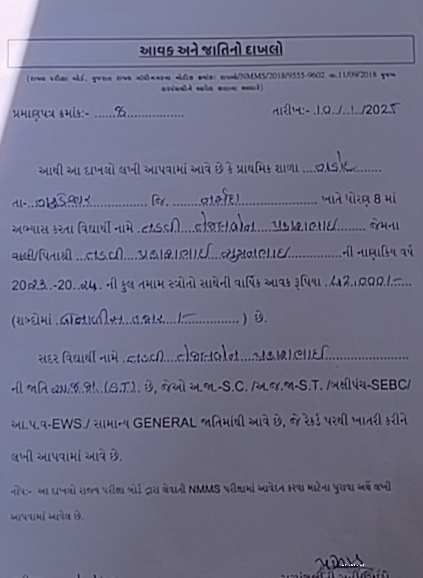 આવક અને જાતિનો દાખલો
(રાજ્ય પરીક્ષા બોર્ડ, ગુજરાત રાજ્ય ગાંધીનગરના નોટીસ ક્રમાંક: રાપબો/NMMS/2018/9555-9602 તા.11/09/2018 મુજબ
સરપંચશ્રીને આવેલ સત્તાના આધારે)
પ્રમાણપત્ર ક્રમાંક:- ......8............... તારીખ:- .10../..1../2025
આથી આ દાખલો લખી આપવામાં આવે છે કે પ્રાથમિક શાળા
તા- જિ. નર્મદા ખાતે ધોરણ 8 માં
અભ્યાસ કરતા વિદ્યાર્થી નામે તડવી તેજલબેન પ્રકાશભાઇ જેમના
વાલી/પિતાશ્રી તડવી પ્રકાશભાઇ ની નાણાકિય વર્ષ
2023.-2024. ની કુલ તમામ સ્ત્રોતો સાથેની વાર્ષિક આવક રૂપિયા .42,000/-
(શબ્દોમાં હજાર /- ) છે.
સદર વિદ્યાર્થી નામે તડવી તેજલબેન પ્રકાશભાઇ
ની જાતિ (S.T.) છે, જેઓ અ.જા.-S.C. /અ.જ.જા-S.T. /બક્ષીપંચ-SEBC/
આ.પ.વ-EWS./ સામાન્ય GENERAL જાતિમાંથી આવે છે, જે રેકર્ડ પરથી ખાતરી કરીને
લખી આપવામાં આવે છે.
નોંધ:- આ દાખલો રાજ્ય પરીક્ષા બોર્ડ દ્વારા લેવાતી NMMS પરીક્ષામાં આવેદન કરવા માટેના પુરાવા અર્થે લખી
આપવામાં આવેલ છે.